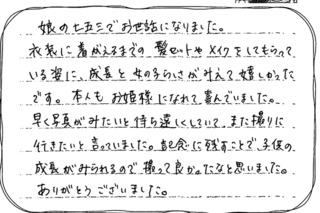 娘の七五三でお世話になりました。
衣装に着がえるまでの 髪セットやメイクをしてもらって
いる姿に、成長と女の子らしさがみえて嬉しかった
です。本人もお姫様になれて喜んでいました。
早く写真がみたいと待ち遠しくしていて、また撮りに
行きたいと言っていました。記念に残すことで、子供の
成長がみられるので撮って良かったなと思いました。
ありがとうございました。